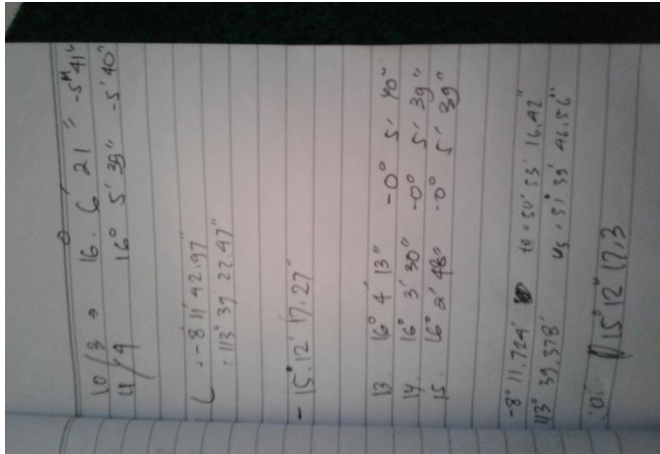 10/3 → 16° 6' 21" -5ᴹ 41"
4/4 16° 5' 39" -5' 40"
L = -8° 11' 42.97"
= 113° 39' 22.47"
- 15° 12' 17.27"
13. 16° 4' 13" -0° 5' 40"
14. 16° 3' 30" -0° 5' 39"
15. 16° 2' 48" -0° 5' 39"
-8° 11.724' 10 = 50' 53' 16.42"
113° 39.378' 45 = 51° 39' 46.56"
15° 12" 17,3